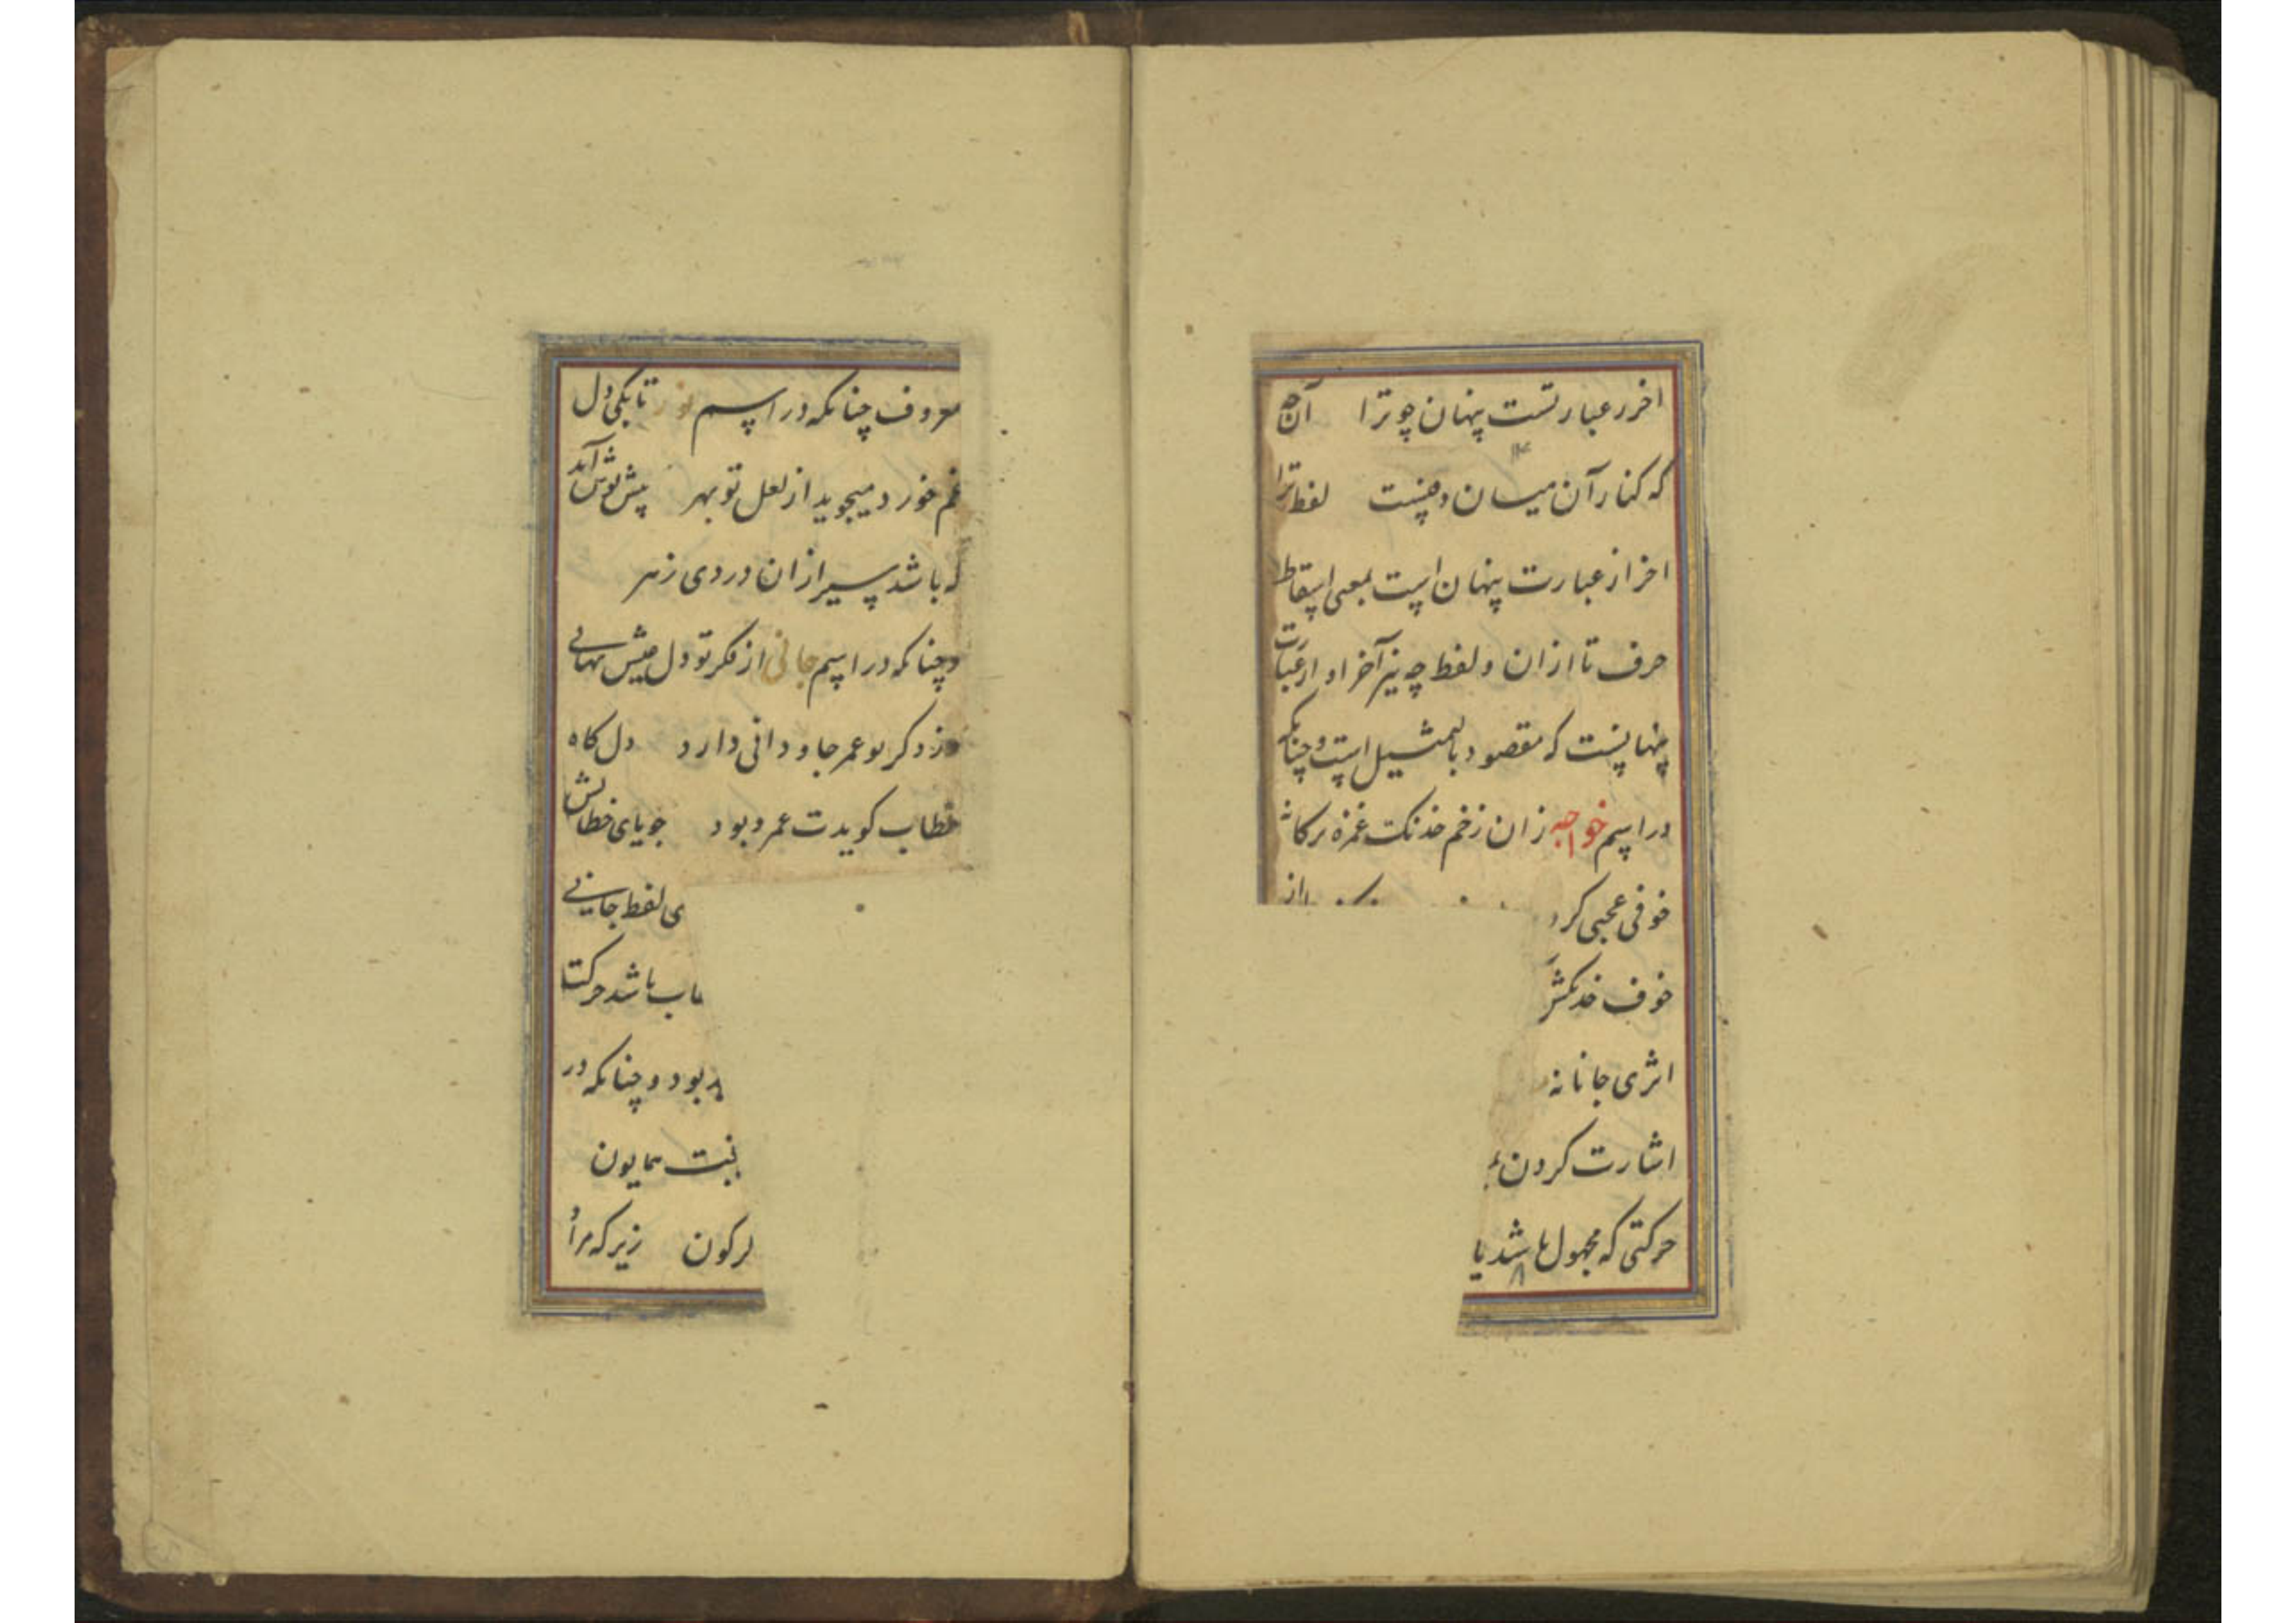 اخر ز عبارتست پنهان چو ترا آن چه
که کنار آن میان و هنیست لفظ ترا
اخر از عبارت پنهان است بمعنی اسقاط
حرف تا ازان و لفظ چه نیز آخر او از عبارت
پنهانیست که مقصود بالتمثیل است و چنانکه
در اسم خواجه زان زخم خدنک غمزه
خوفی عجبی کرد
خوف خدنکش
اثری جانانه
اشارت کردن
حرکتی که مجهول باشد یا
معروف چنانکه در اسم نور تا بکی دل
غم خورد میجوید از لعل تو بهر پیش نوش آید
که باشد پس ازان دردی زهر
و چنانکه در اسم جانی از فکر تو دل عیش نهانی
وز ذکر تو عمر جاودانی دارد دل کاه
خطاب کویدت عمر و بود جویای خطابش
ی لفظ جانی
اب باشد حرکت
بود و چنانکه در
همایون
کون زیر که مراد